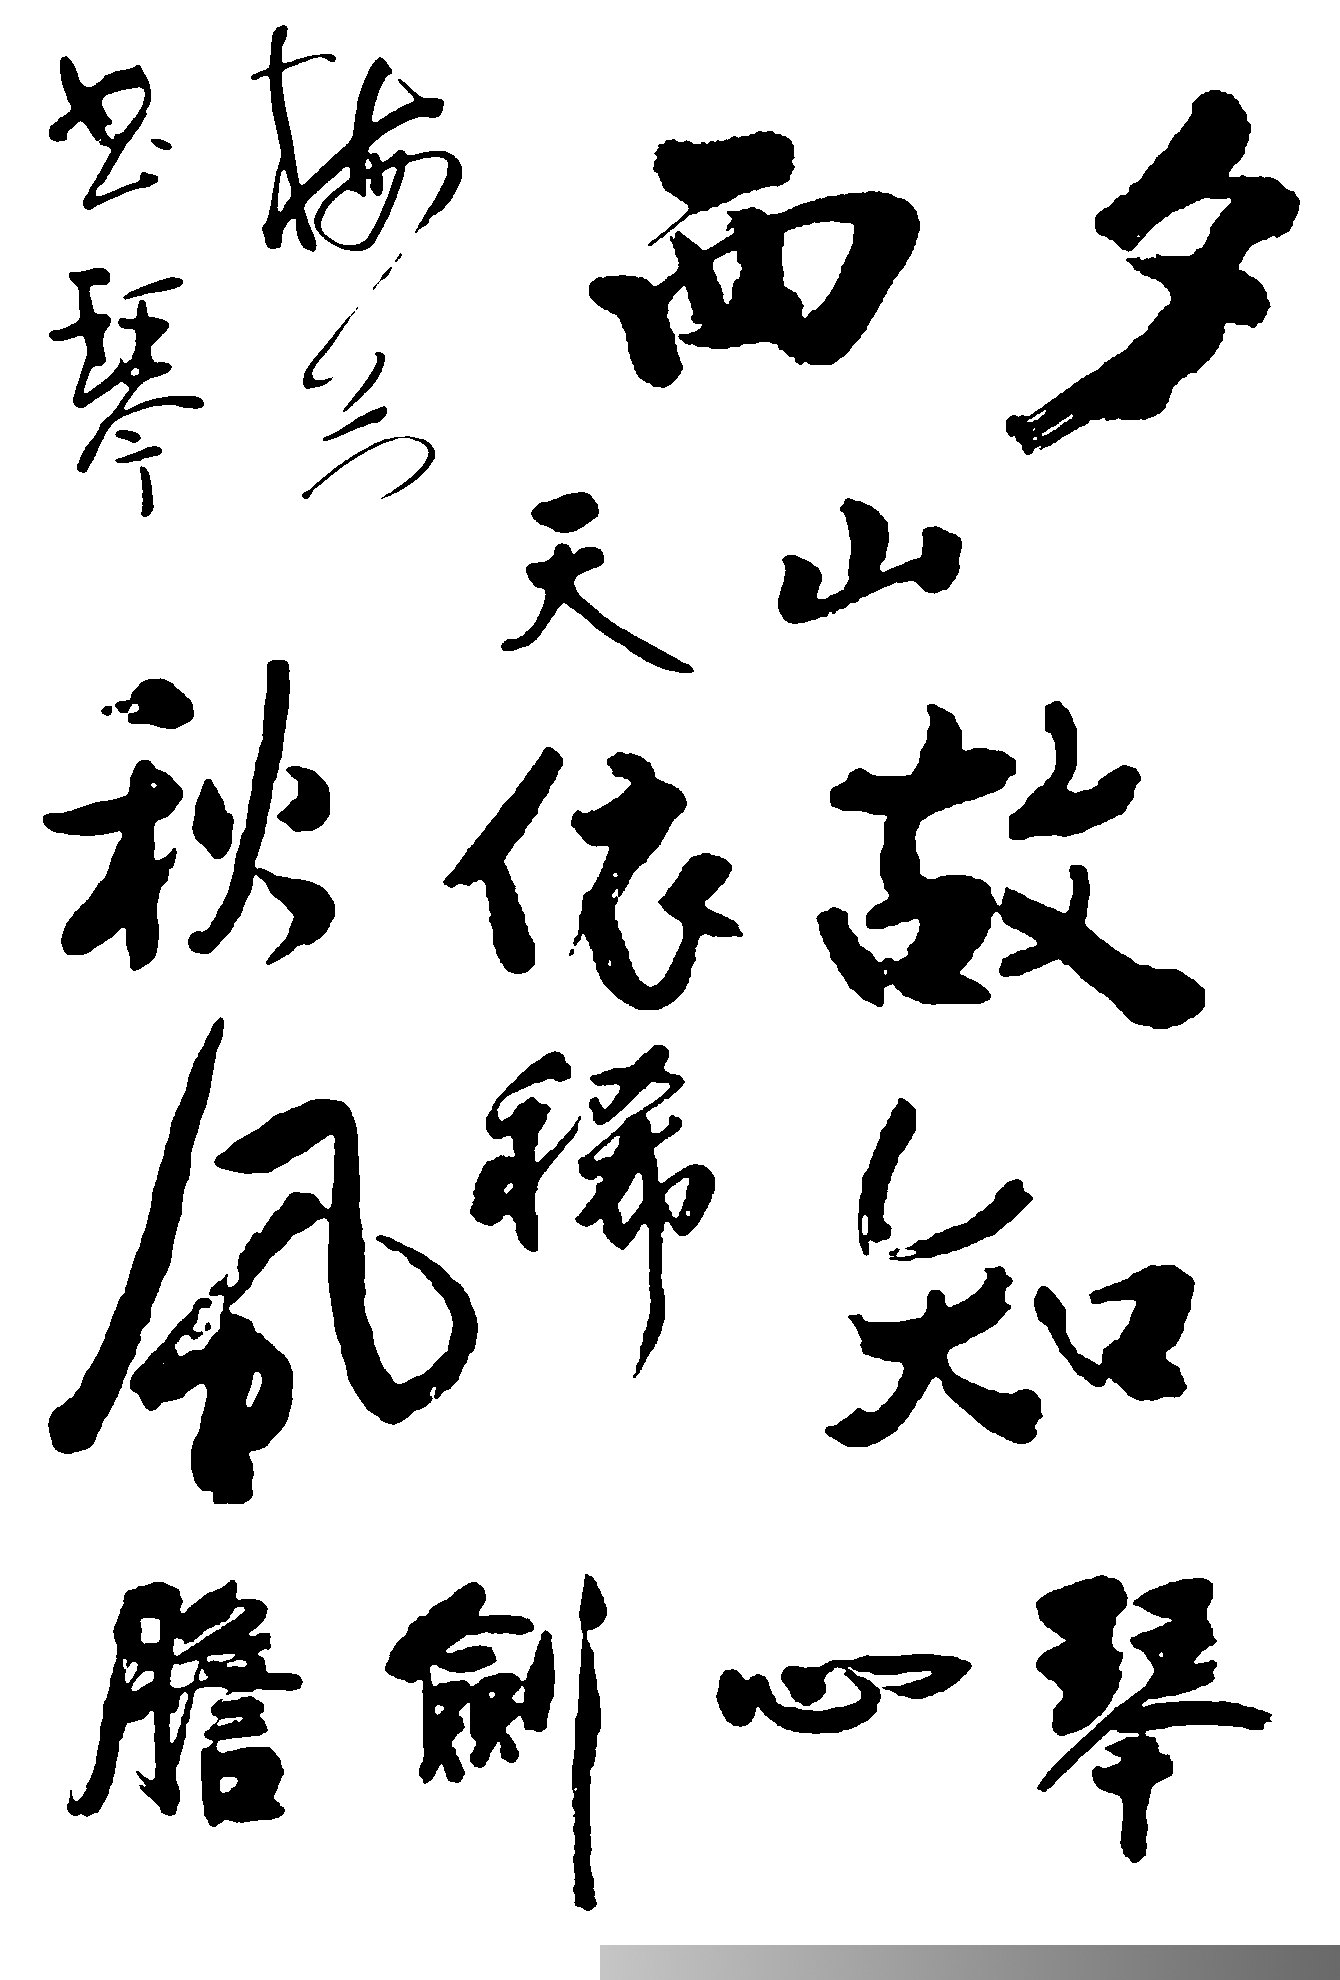 夕
西
山
天
故知
依稀
梅
琴
秋風
琴心劍膽